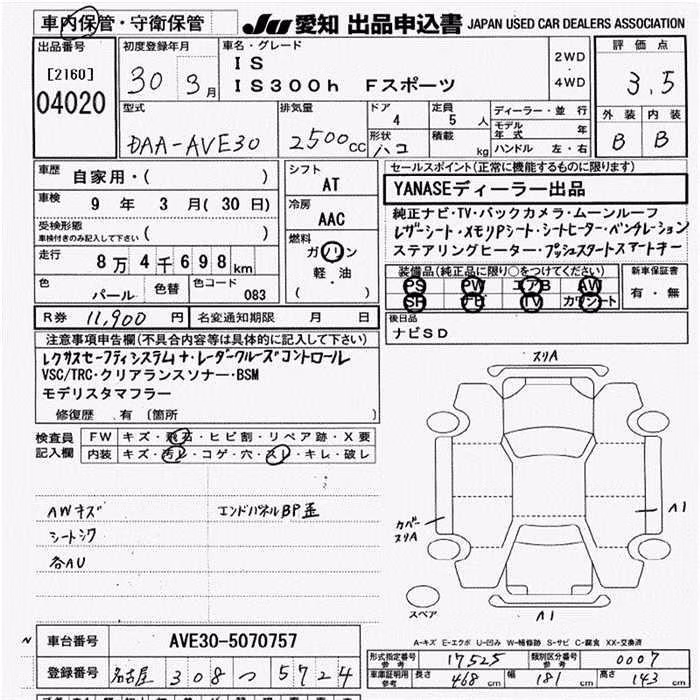 車内保管・守衛保管
JU 愛知 出品申込書 JAPAN USED CAR DEALERS ASSOCIATION
出品番号
[2160]
04020
初度登録年月
30 3月
車名・グレード
IS
IS300h Fスポーツ
2WD
・
4WD
評価点
3.5
外装 内装
B B
型式
DAA-AVE30
排気量
2500cc
ドア
4
定員
5人
形状
ハコ
積載
kg
ディーラー・並行
モデル年式 年
ハンドル 左・右
車歴
自家用・( )
車検
9年 3月(30日)
受検形態
車検付きのみ記入して下さい ( )
走行
8万4千698km
色
パール
色替
色コード
083
シフト
AT
冷房
AAC
燃料
ガソリン
軽・油
( )
セールスポイント(正常に機能するものに限ります)
YANASEディーラー出品
純正ナビ・TV・バックカメラ・ムーンルーフ
レザーシート・メモリPシート・シートヒーター・ベンチレーション
ステアリングヒーター・プッシュスタートスマートキー
装備品(純正品に限り○をつけてください)
PS PW エアB AW
SR ナビ TV カワシート
新車保証書
有・無
R券 11,900円 名変通知期限 月 日
後日品
ナビSD
注意事項申告欄(不具合内容等は具体的に記入して下さい)
レクサスセーフティシステム+・レーダークルーズコントロール
VSC/TRC・クリアランスソナー・BSM
モデリスタマフラー
修復歴 有 (箇所 )
検査員
記入欄
FW キズ・飛石・ヒビ割・リペア跡・X要
内装 キズ・汚レ・コゲ・穴・スレ・キレ・破レ
AWキズ
シートシワ
各AU
エンドパネルBP歪
スリA
カバー
スリA
A1
スペア
A1
A-キズ E-エクボ U-凹み W-補修跡 S-サビ C-腐食 XX-交換済
車台番号 AVE30-5070757
登録番号 名古屋 308 つ 5724
形式指定番号
参考
17525
類別区分番号
参考
0007
車庫証明用
参考
長さ 468cm 幅 181cm 高さ 143cm